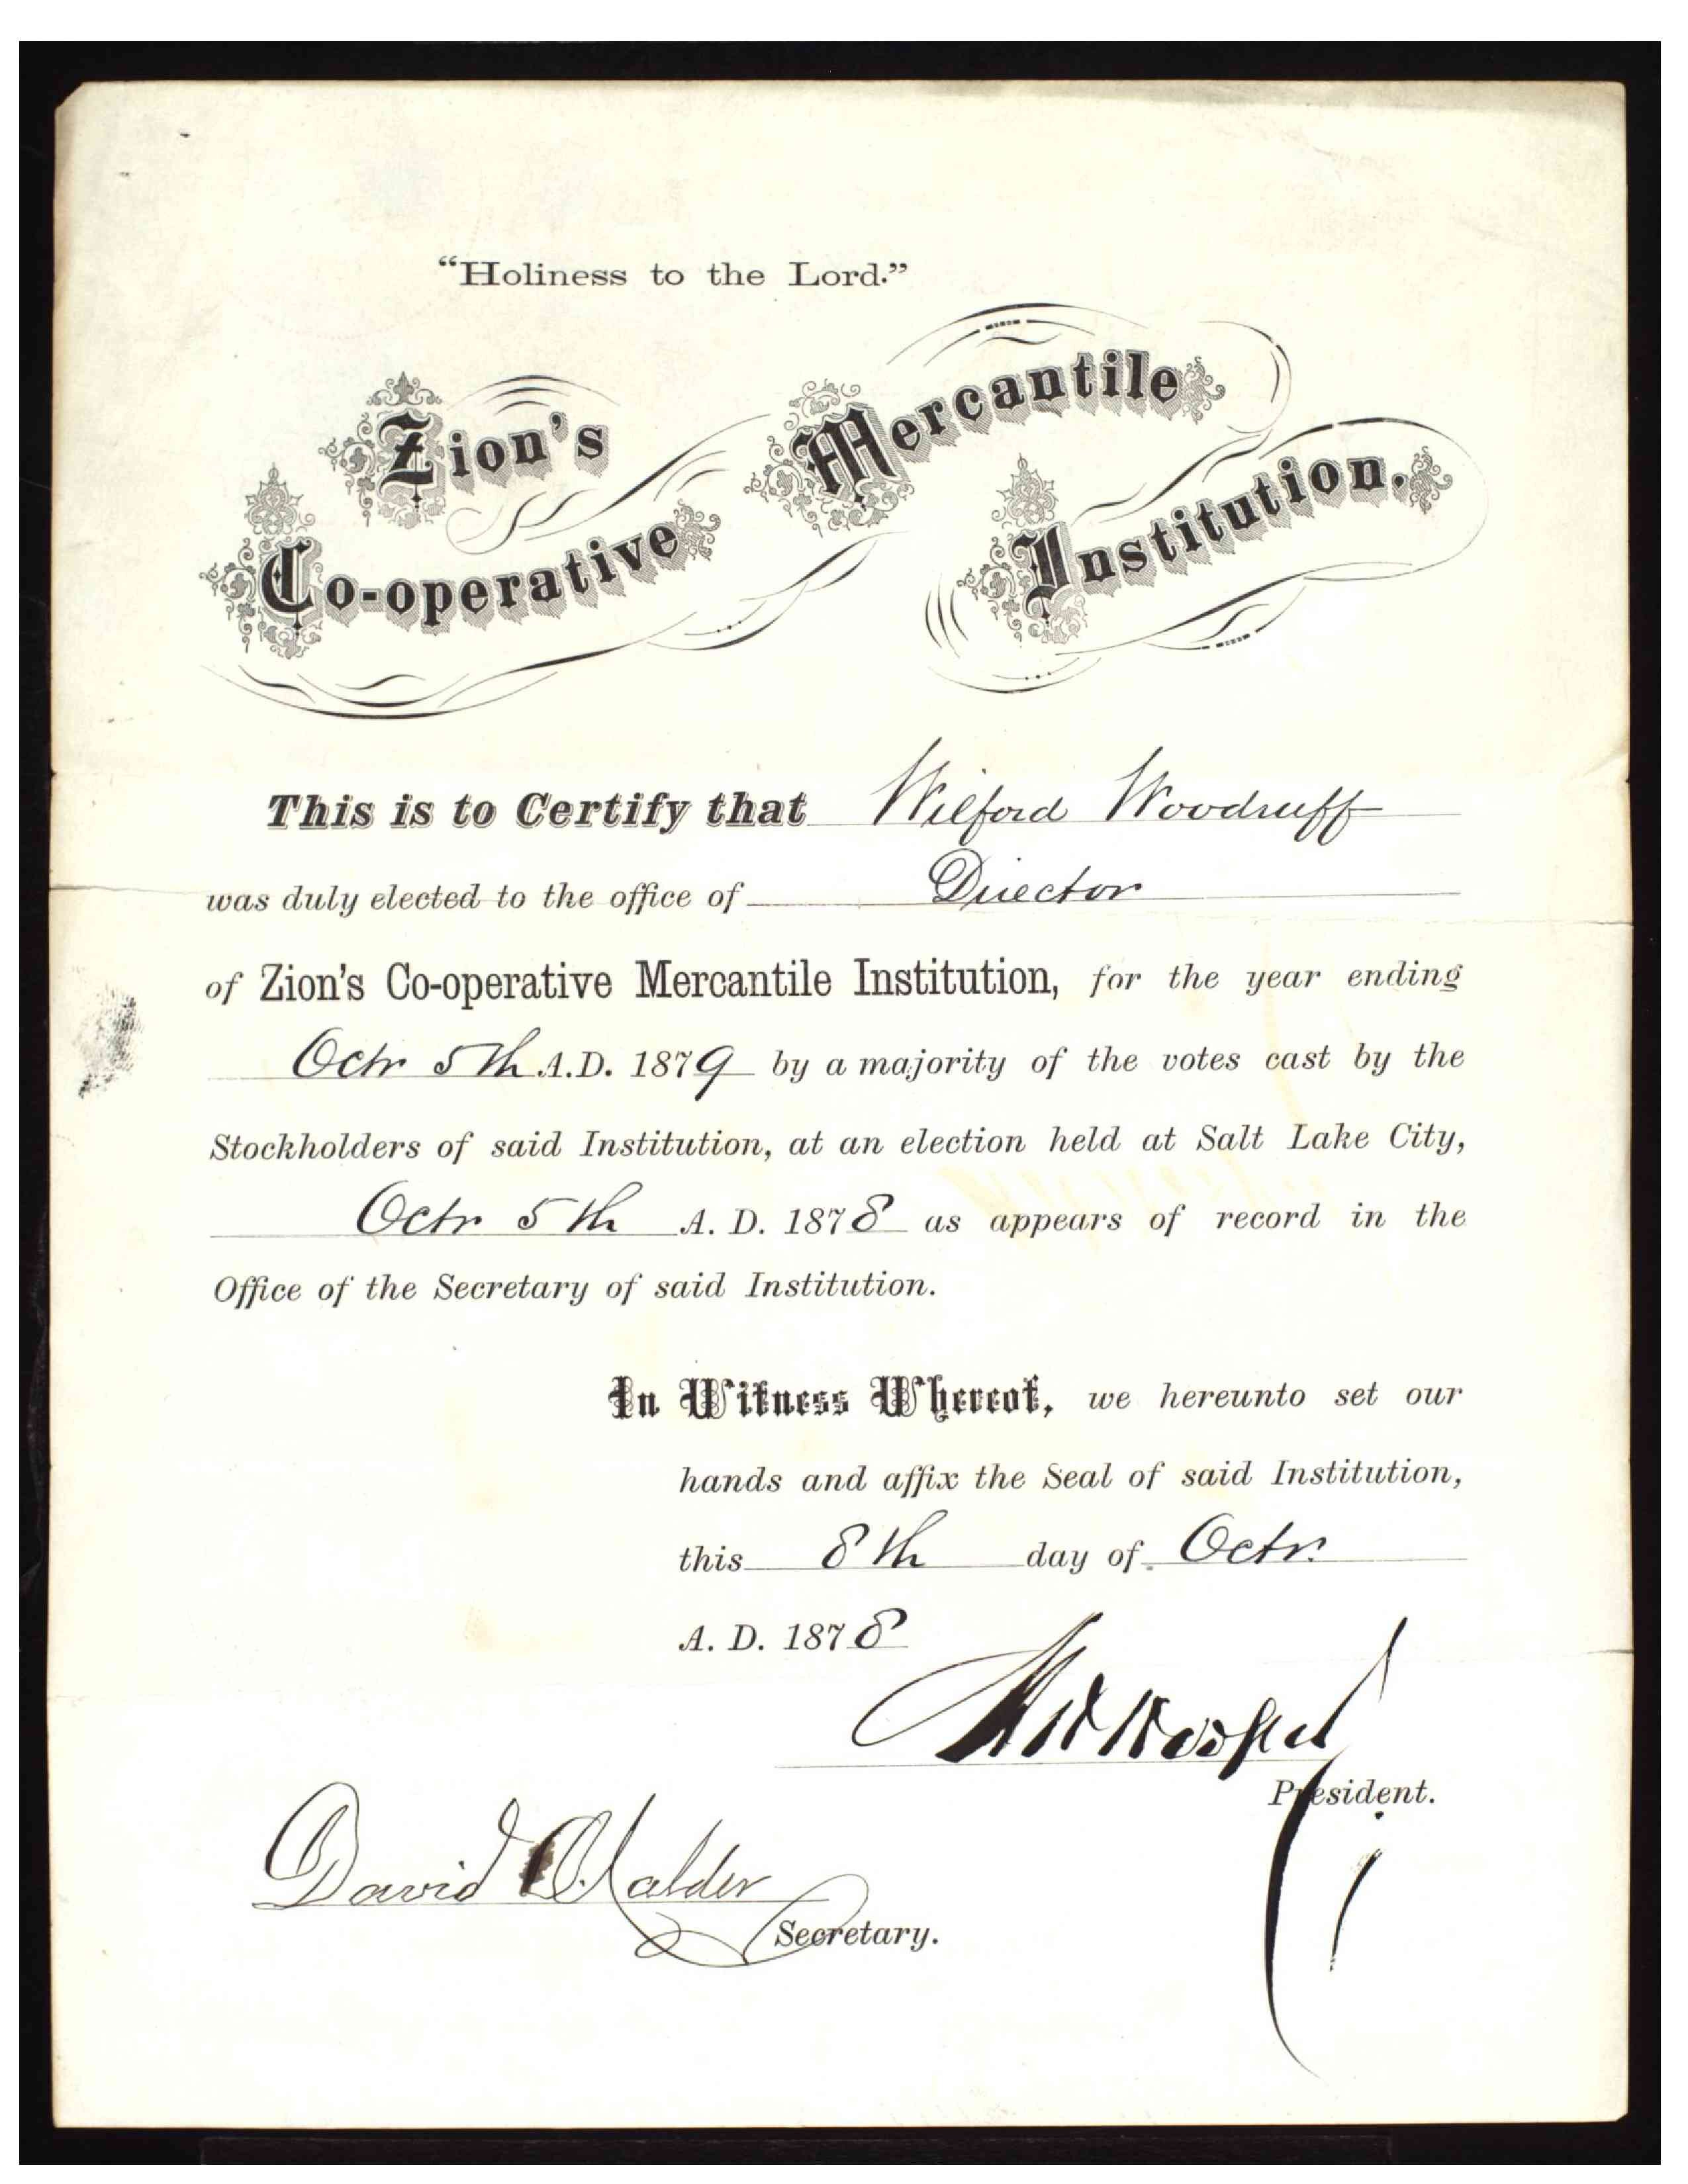 "Holiness to the Lord."
Zion's
Co-operative
Mercantile
Institution.
This is to Certify that Wilford Woodruff
was duly elected to the office of Director
of Zion's Co-operative Mercantile Institution, for the year ending
Octr 5th A.D. 1879 by a majority of the votes cast by the
Stockholders of said Institution, at an election held at Salt Lake City,
Octr 5th A. D. 1878 as appears of record in the
Office of the Secretary of said Institution.
In Witness Whereof, we hereunto set our
hands and affix the Seal of said Institution,
this 8th day of Octr.
A. D. 1878
W H Hooper
President.
David O. Calder
Secretary.